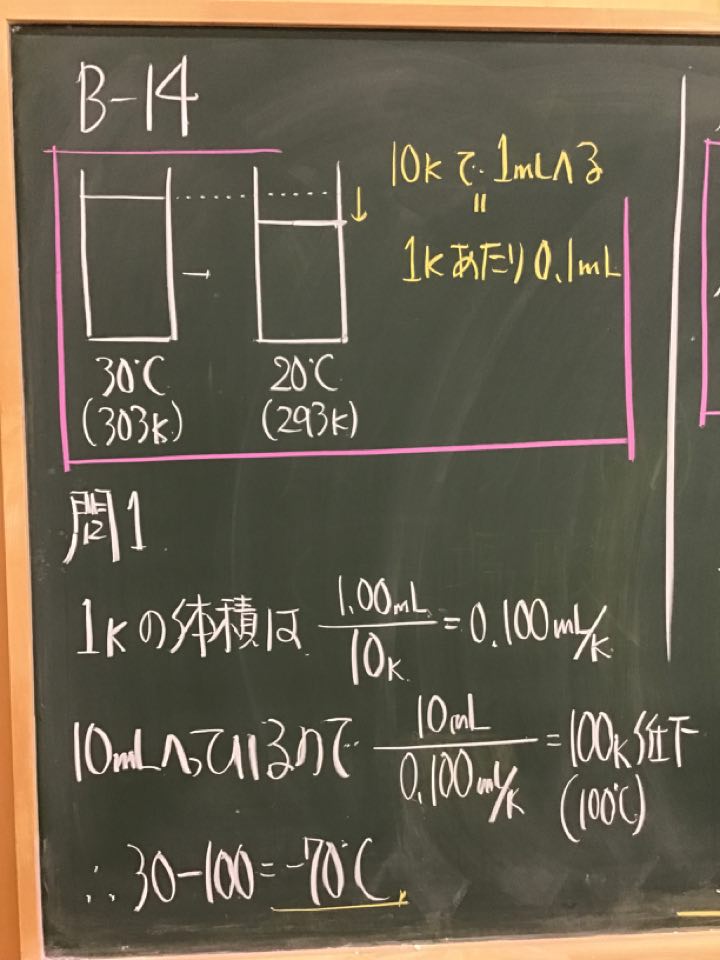 B-14
10Kで1mLへる
=
1Kあたり0.1mL
→
30℃
(303K)
20℃
(293K)
問1
1Kの体積は 1.00mL/10K = 0.100mL/K
10mLへっているので 10mL/0.100mL/K = 100K低下
(100℃)
∴30-100=-70℃